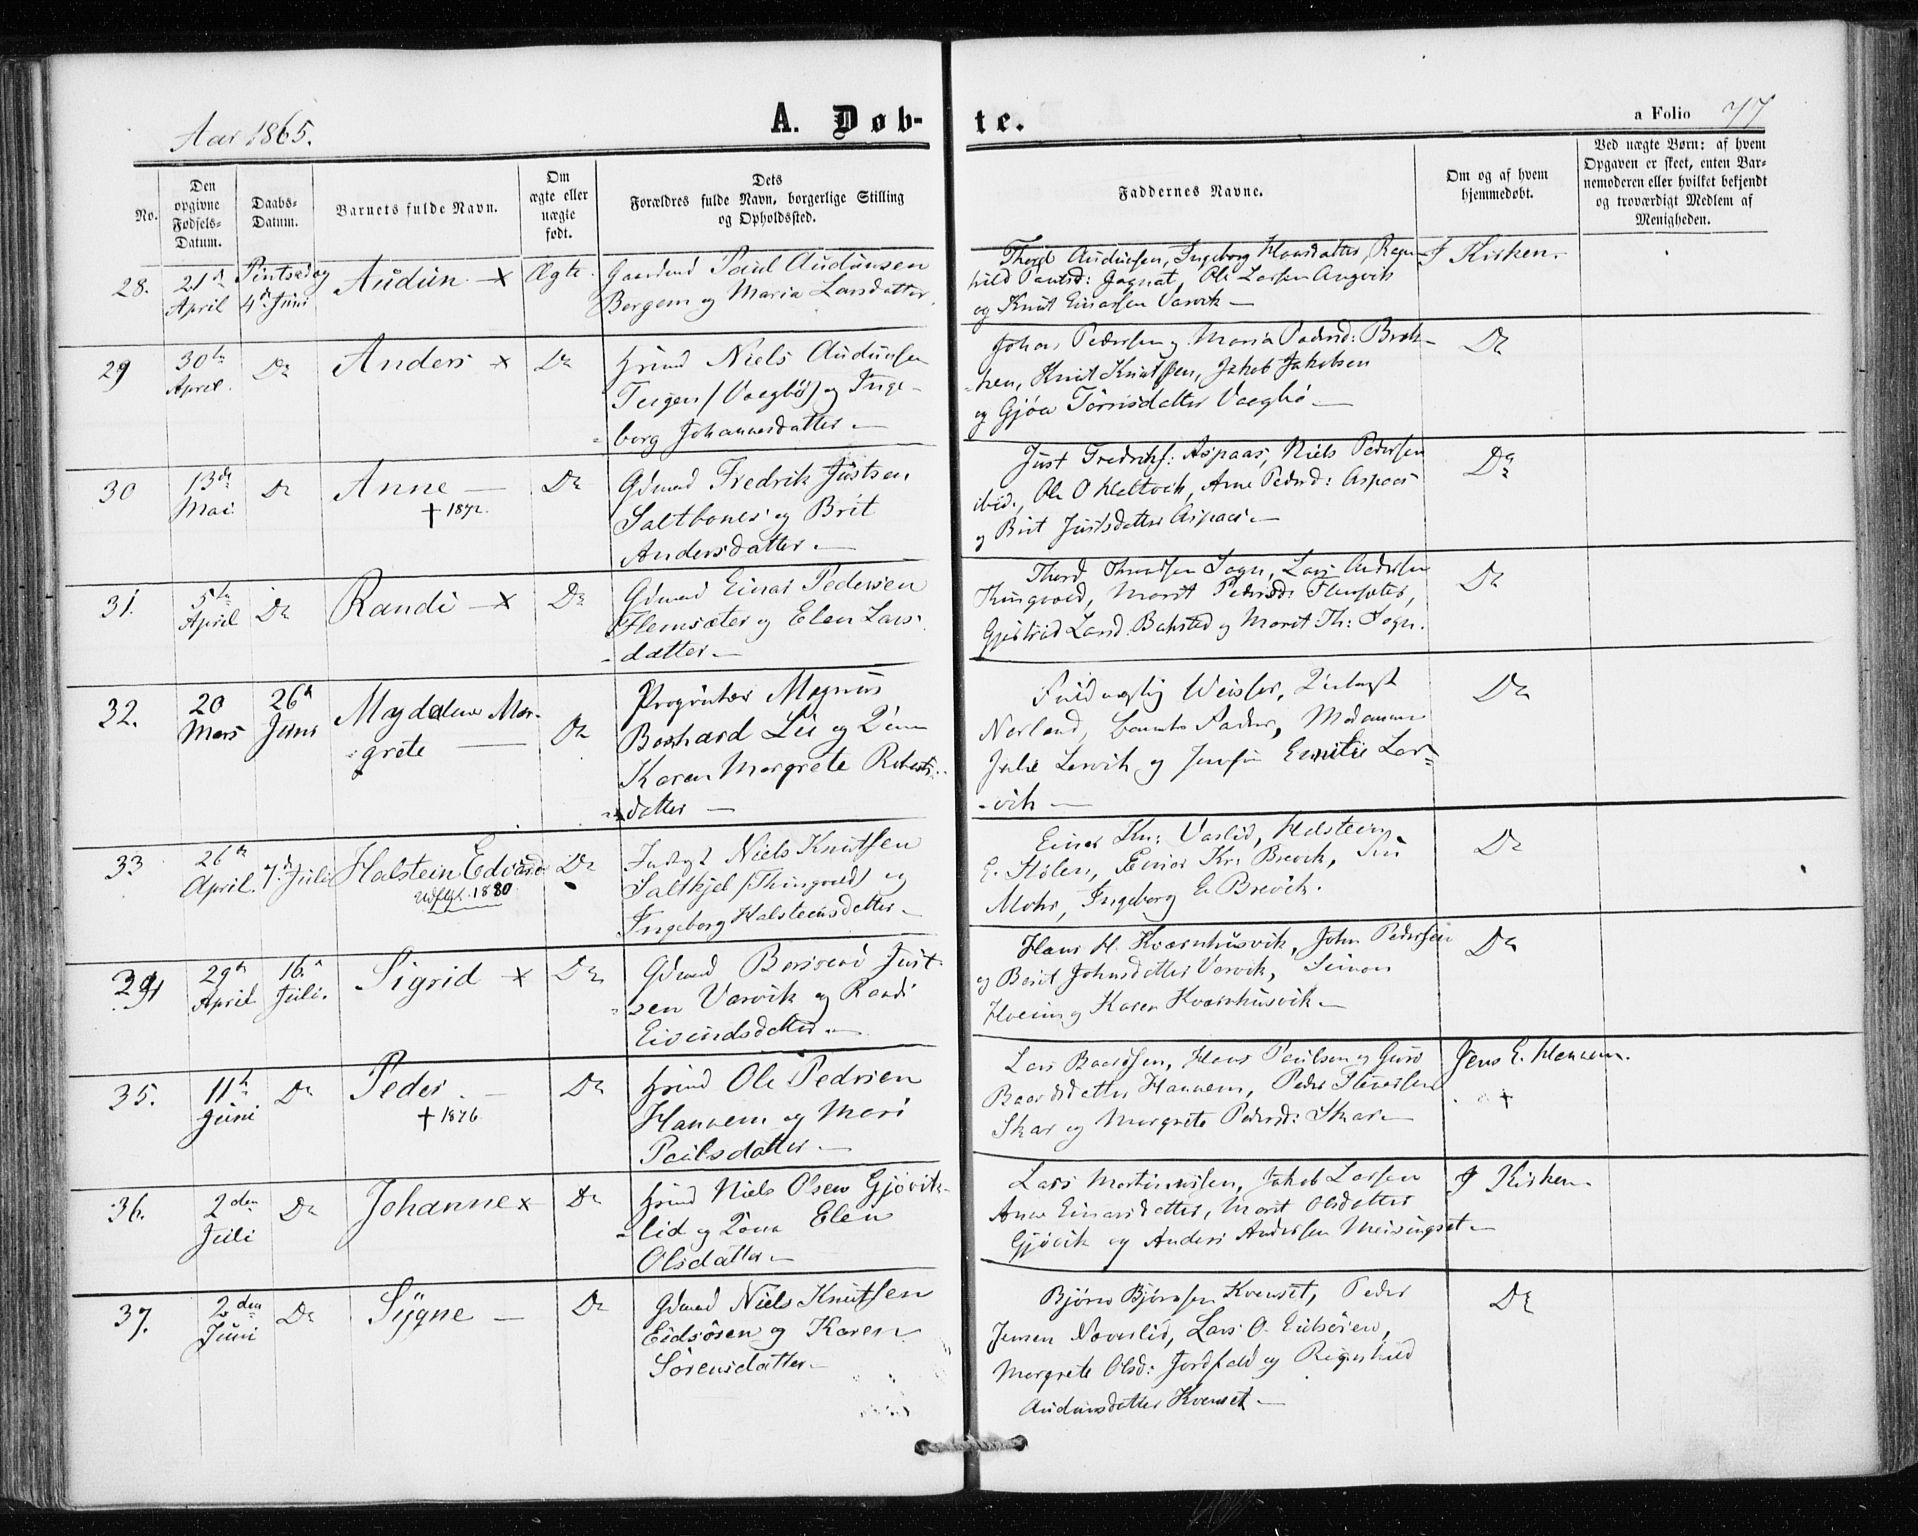 Aar 1865.
A. Døb- te.
a Folio 77
No.
Den opgivne Fødsels-Datum.
Daabs-Datum.
Barnets fulde Navn.
Om ægte eller nægte født.
Dets Forældres fulde Navn, borgerlige Stilling og Opholdssted.
Faddernes Navne.
Om og af hvem hjemmedøbt.
Ved nægte Børn: af hvem Opgaven er skeet, enten Barnemoderen eller hvilket bekjendt og troværdigt Medlem af Menigheden.
28. 21de April Pintsedag 4de Juni Audun x Ægte
Gaardmd Paul Audunsen
Bergem og Maria Larsdatter.
Thord Audunsen, Ingeborg Hansdatter, Ragn-
hild Paulsd: Jagnat, Ole Larsen Angvik
og Knut Einarsen Varvik —
I Kirken.
29 30te April. Do Anders x Do
Hrmd Niels Audunsen
Teigen (Vaagbø) og Inge-
borg Johannesdatter —
Johan Pedersen og Maria Pedersd: Brek-
ken, Knut Knutsen, Jakob Jakobsen
og Gjøa Tørrisdatter Vaagbø —
Do
30 13de Mai Do Anne — Do
† 1872.
Gdmd Fredrik Justsen
Saltbones og Brit
Andersdatter —
Just Fredriks: Aspaas, Niels Pedersen
ibid:, Ole O Holtvik, Arne Pedersd: Aspaas
og Brit Justsdatter Aspaas —
Do
31. 5te April Do Randi — x Do
Gdmd Einar Pedersen
Flemsæter og Elen Lars-
datter —
Thord Thordsen Sogn, Lars Andersen
Thingvold, Marit Pedersd: Flemsæter,
Gjertrud Larsd. Bakstad og Marit Th: Sogn.
Do
32. 20 Mars 26de Juni Magdalene Mar-
grete — Do
Proprietær Magnus
Boshard Lie og
Karen Margrete Roberts-
datter —
Fuldmægtig Weisser,
Norland, barnets Fader, Madamme
Julie Lervik og Jomfru Emilie Ler-
vik —
Do
33 26de April. 7de Juli Halstein Edvard Do
Udflyt. 1880
Indst Niels Knutsen
Saltkjel (Thingvold) og
Ingeborg Halsteinsdatter —
Einar Kn: Varlid, Halstein
E. Stølen, Einar Kr: Brevik,
Mohr, Ingeborg E Brevik.
Do
34 29de April 16de Juli. Sigrid x Do
Gdmd Just-
sen Varvik og Randi
Eivindsdatter —
Hans H. Kvernhusvik, John Pedersen
og Berit Johnsdatter Varvik, Simon
Hoem og Karen Kvernhusvik —
Do
35. 11te Juni Do Peder. — Do
† 1876.
Hrmd Ole Pedersen
Hanem og Mari
Paulsdatter —
Lars Baardsen, Hans Paulsen og Guro
Baardsdatter Hanem, Peder
Skar og Margrete Pedersd: Skar —
Jens E. Hanem.
+
36. 2den Juli Do Johanne x Do
Hrmd Niels Olsen Gjøvik-
lid og Kona Elen
Olsdatter —
Lars Martinusen, Jakob Larsen
Anne Einarsdatter, Marit Olsdatter
Gjøvik og Anders Andersen Meisingset —
I Kirken
37. 2den Juni Do Sygne — Do
Gdmd Niels Knutsen
Eidsøren og Karen
Sørensdatter —
Bjørn Bjørnsen Kvenset, Peder
Jensen Naverlid, Lars O. Eidsøren,
Margrete Olsd: Jordfald og Ragnhild
Audunsdatter Kvenset —
Do